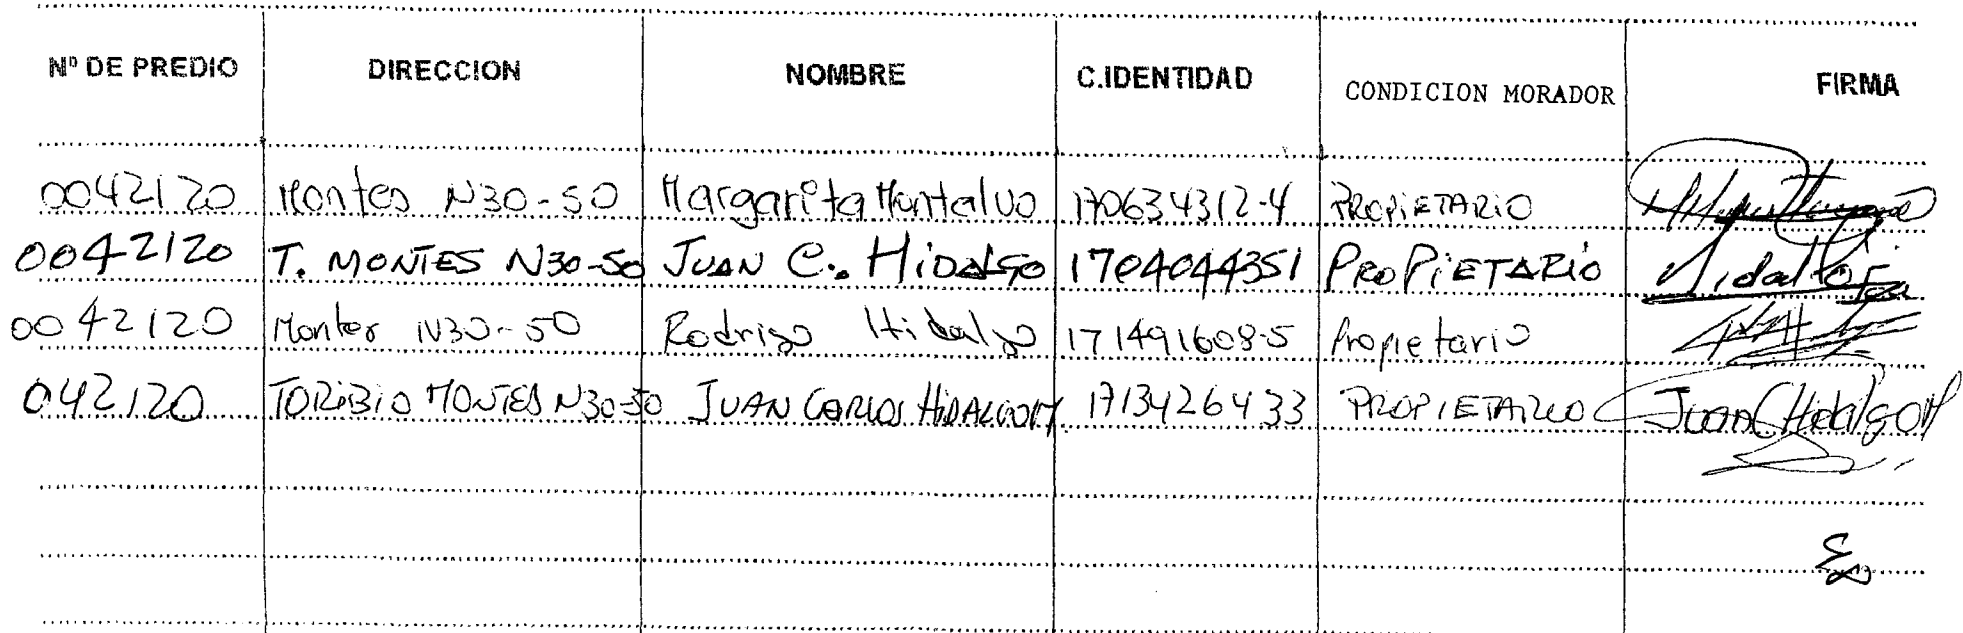 Nº DE PREDIO DIRECCION NOMBRE C.IDENTIDAD CONDICION MORADOR FIRMA
0042120 Montes N30-50 Margarita Montalvo 170634312-4 PROPIETARIO
0042120 T. MONTES N30-50 JUAN C. HiDALGO 1704044351 PROPiETARiO
0042120 Montes N30-50 Rodrigo Hidalgo 171491608-5 Propietario
042120 TORiBiO MONTES N30-50 JUAN CARLOS HiDALGO M. 1713426433 PROPIETARIO Juan C Hidalgo M